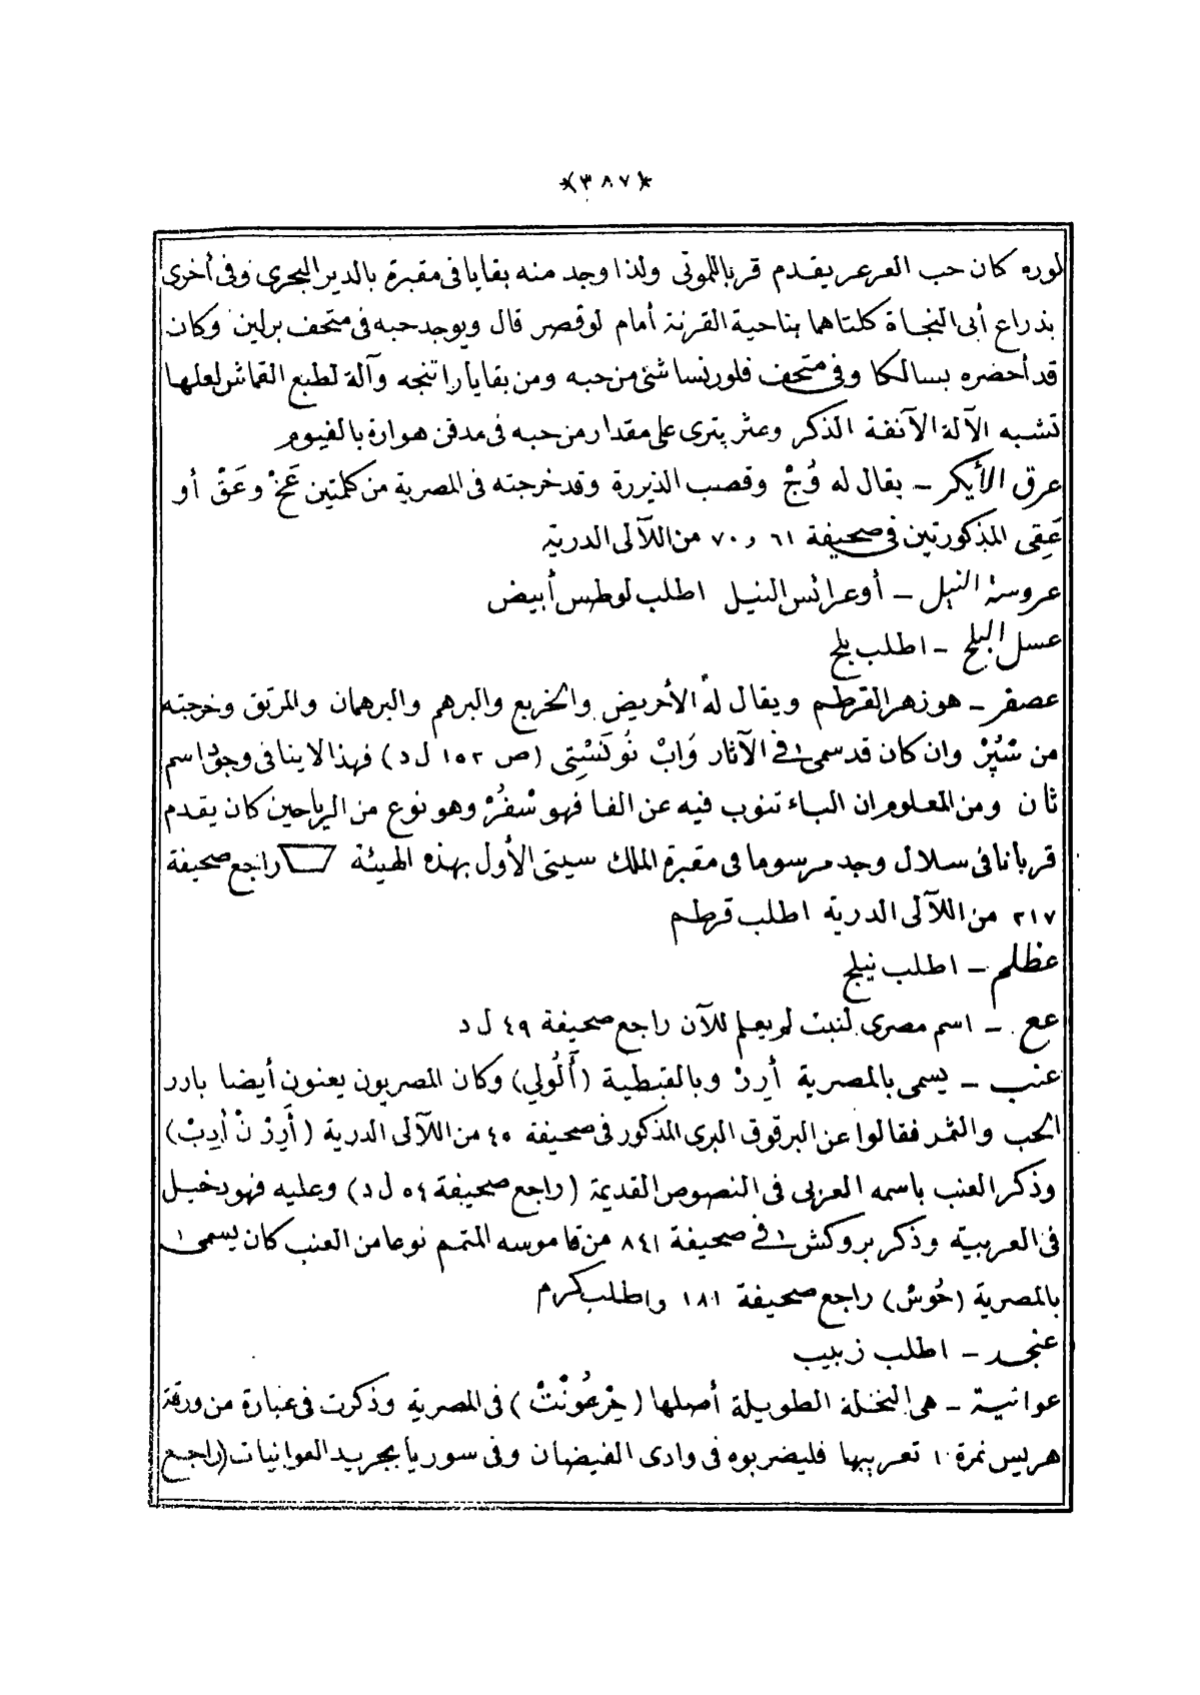 *(٣٨٧)*
لوره كان حب العرعر يقدم قربا للموتى ولذا وجد منه بقايا فى مقبرة بالدير البحرى وفى أخرى
بذراع أبى النجاة كلتاهما بناحية القرنة أمام لوقصر قال ويوجد حبه فى متحف برلين وكان
قد أحضره بسالكا وفى متحف فلورنسا شئ من حبه ومن بقايا راتنجه وآلة لطبع القماش لعلها
تشبه الآلة الآنفة الذكر وعثر پترى على مقدار من حبه فى مدفن هوارة بالفيوم
عرق الأيكر - يقال له وُجْ وقصب الذريرة وقد خرجته فى المصرية من كلمتين عَخْ وعَقْ أو
عَقِى المذكورتين فى صحيفة ٦١ و ٧٠ من اللآلى الدرية
عروسة النيل - أو عرائس النيل اطلب لوطس أبيض
عسل البلح - اطلب بلح
عصفر - هو زهر القرطم ويقال له الأحريض والخريع والبرهم والبرهمان والمرتق وخرجته
من سْپُرْ وان كان قد سمى فى الآثار وَابْ نُوكَسْتِى (ص ١٥٢ ل د) فهذا لا ينافى وجود اسم
ثان ومن المعلوم ان الباء تنوب فيه عن الفا فهو سْفُرْ وهو نوع من الرياحين كان يقدم
قربانا فى سلال وجد مرسوما فى مقبرة الملك سيتى الأول بهذه الهيئة راجع صحيفة
٢١٧ من اللآلى الدرية اطلب قرطم
عظلم - اطلب نيلج
عع - اسم مصرى لنبت لم يعلم للآن راجع صحيفة ٤٩ ل د
عنب - يسمى بالمصرية أَرِرْ وبالقبطية (أَلُولِي) وكان المصريون يعنون أيضا بارر
الحب والثمر فقالوا عن البرقوق البرى المذكور فى صحيفة ٤٥ من اللآلى الدرية (أَرِرْ نْ أدِبْ)
وذكر العنب باسمه العربى فى النصوص القديمة (راجع صحيفة ٥٤ ل د) وعليه فهو دخيل
فى العربية وذكر بروكش فى صحيفة ٨٤١ من قاموسه المتمم نوعا من العنب كان يسمى
بالمصرية (حُوسْ) راجع صحيفة ١٨١ واطلب كرم
عنجد - اطلب زبيب
عوانية - هى النخلة الطويلة أصلها (خِرْعُونْتْ) فى المصرية وذكرت فى عبارة من ورقة
هريس نمرة ١ تعريبها فليضربوه فى وادى الفيضان وفى سوريا بجريد العوانيات (راجع